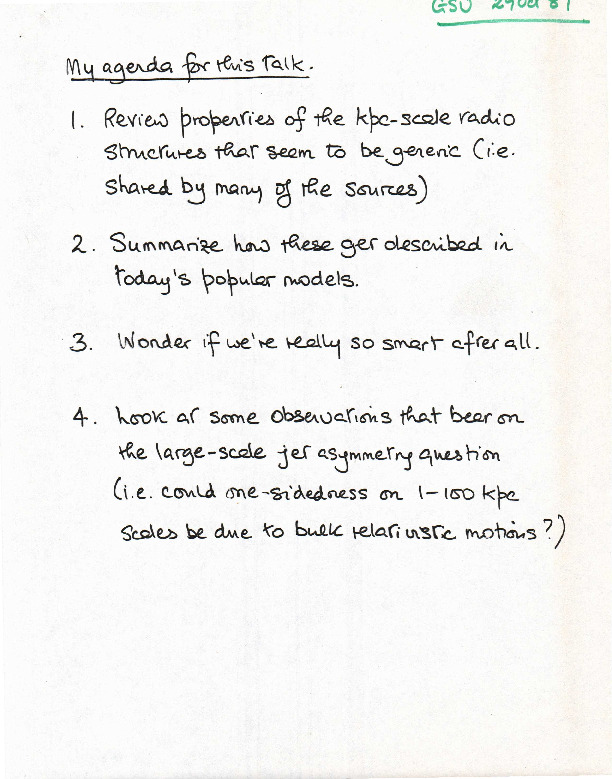 GSU 29 Oct 87
My agenda for this talk.
1. Review properties of the kpc-scale radio
structures that seem to be generic (i.e.
shared by many of the sources)
2. Summarize how these get described in
today's popular models.
3. Wonder if we're really so smart after all.
4. Look at some observations that bear on
the large-scale jet asymmetry question
(i.e. could one-sidedness on 1-100 kpc
scales be due to bulk relativistic motions?)